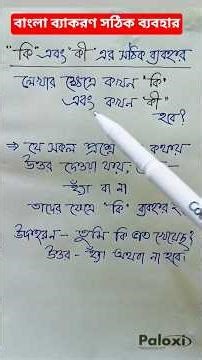 বাংলা ব্যাকরণ সঠিক ব্যবহার
"কি" এবং "কী" এর সঠিক ব্যবহার
লেখার ক্ষেত্রে কখন "কি"
এবং কখন "কী"
হবে?
⇒ যে সকল প্রশ্নের কথায়
উত্তর দেওয়া যায়,
হ্যাঁ বা না
তাদের ক্ষেত্রে "কি" ব্যবহার
উদাহরন - তুমি কি ভাত খেয়েছ?
উত্তর - হ্যাঁ অথবা না হবে।
Paloxi